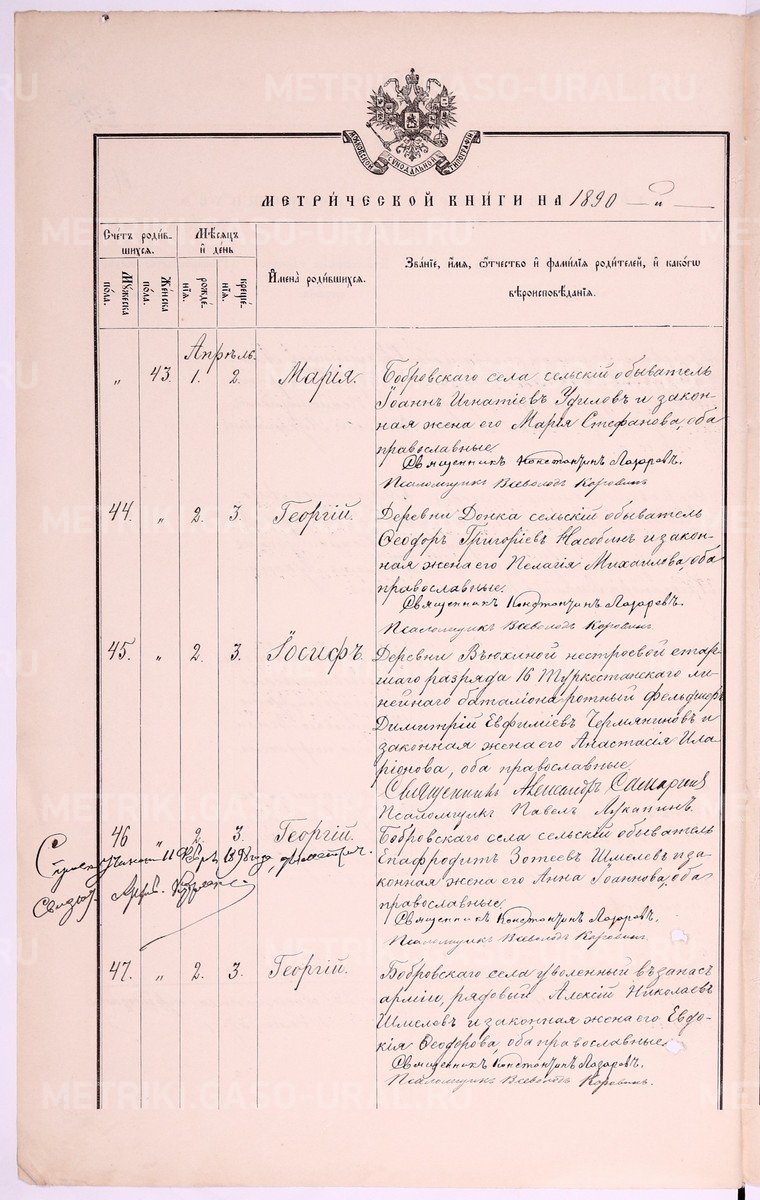 METRIKI.GASO-URAL.RU
МОСКОВСКОЙ СѴНОДАЛЬНОЙ ТИПОГРАФІИ
МЕТРИ́ЧЕСКОЙ КНИ́ГИ НА 1890
Сче́тъ роди́в-
шихся.
Му́жеска по́ла.
Же́нска по́ла.
Мѣ́сяцъ
и҆ де́нь
рожде́-
нія.
креще́-
нія.
И҆мена̀ роди́вшихся.
Зва́ніе, и҆́мя, ѻ҆́тчество и҆ фами́лія роди́телей, и҆ како́гѡ
вѣроисповѣ́данія.
Апрѣль.
„ 43. 1. 2. Марія.
Бобровскаго села сельскій обыватель
Іоаннъ Игнатіевъ Уфиловъ и закон-
ная жена его Марія Стефанова, оба
православные
Священникъ Константинъ Лазаревъ.
Псаломщикъ Всеволодъ Коровинъ
44. „ 2. 3. Георгій.
Деревни Донка сельскій обыватель
Ѳеодоръ Григоріевъ Насобинъ и закон-
ная жена его Пелагія Михаилова, оба
православные.
Священникъ Константинъ Лазаревъ.
Псаломщикъ Всеволодъ Коровинъ
45. „ 2. 3. Іосифъ.
Деревни Вьюхиной нестроевой стар-
шаго разряда 16 Туркестанскаго ли-
нейнаго баталіона ротный фельдшеръ
Димитрій Евфиміевъ Чермяниновъ и
законная жена его Анастасія Ила-
ріонова, оба православные
Священникъ Александръ Самарцевъ
Псаломщикъ Павелъ Лукапинъ.
46 „ 2. 3. Георгій.
Бобровскаго села сельскій обыватель
Епафродитъ Зотеевъ Шмелевъ и за-
конная жена его Анна Іоаннова, оба
православные
Священникъ Константинъ Лазаревъ.
Псаломщикъ Всеволодъ Коровинъ.
11 1898 года
47. „ 2. 3. Георгій.
Бобровскаго села уволенный въ запасъ
арміи, рядовый Алексій Николаевъ
Шмелевъ и законная жена его Евдо-
кія Ѳеодорова, оба православные
Священникъ Константинъ Лазаревъ.
Псаломщикъ Всеволодъ Коровинъ.
METRIKI.GASO-URAL.RU